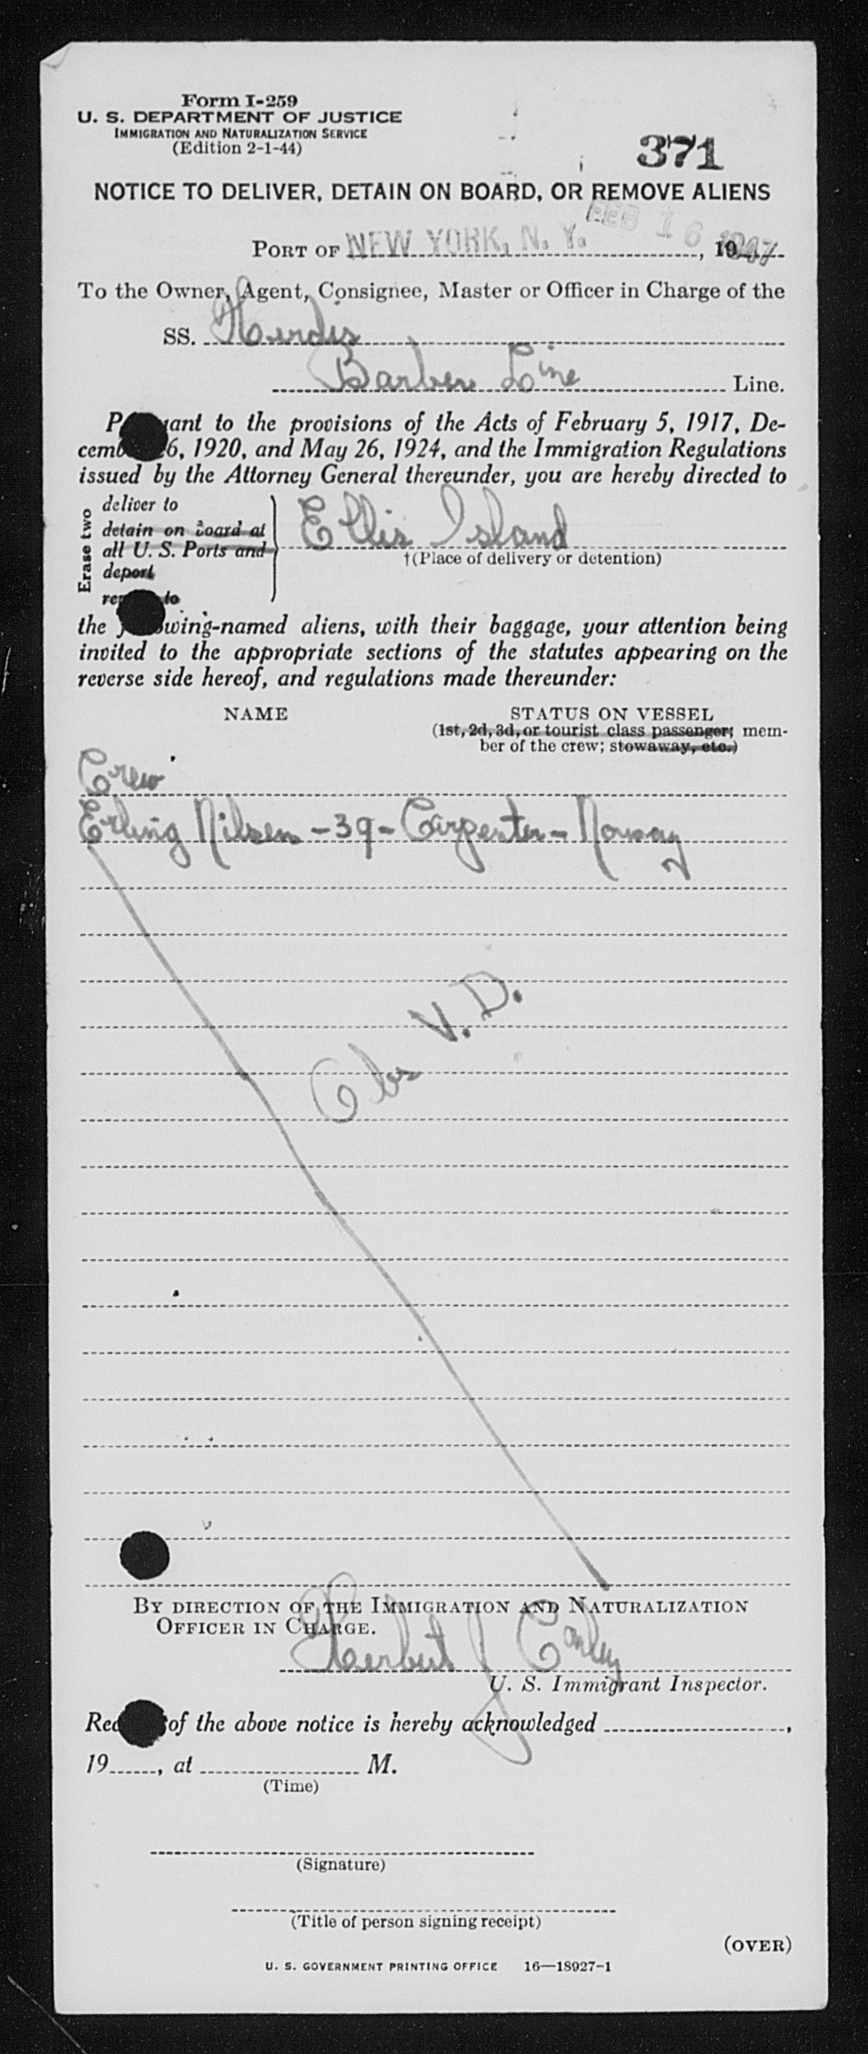 Form I-259
U. S. DEPARTMENT OF JUSTICE
IMMIGRATION AND NATURALIZATION SERVICE
(Edition 2-1-44)
371
NOTICE TO DELIVER, DETAIN ON BOARD, OR REMOVE ALIENS
FEB 16 1947
PORT OF NEW YORK, N. Y. , 1947
To the Owner, Agent, Consignee, Master or Officer in Charge of the
SS. Herdis
Barber Line Line.
P ant to the provisions of the Acts of February 5, 1917, De-
cemb 6, 1920, and May 26, 1924, and the Immigration Regulations
issued by the Attorney General thereunder, you are hereby directed to
Erase two
deliver to
detain on board at
all U. S. Ports and
deport
re to
Ellis Island
†(Place of delivery or detention)
the f wing-named aliens, with their baggage, your attention being
invited to the appropriate sections of the statutes appearing on the
reverse side hereof, and regulations made thereunder:
NAME STATUS ON VESSEL
(1st, 2d, 3d, or tourist class passenger; mem-
ber of the crew; stowaway, etc.)
Crew
Erling Nilsen - 39 - Carpenter - Norway
Obs V. D.
BY DIRECTION OF THE IMMIGRATION AND NATURALIZATION
OFFICER IN CHARGE.
Herbert J Conley
U. S. Immigrant Inspector.
Rec of the above notice is hereby acknowledged ,
19 , at M.
(Time)
(Signature)
(Title of person signing receipt)
(OVER)
U. S. GOVERNMENT PRINTING OFFICE 16—18927-1